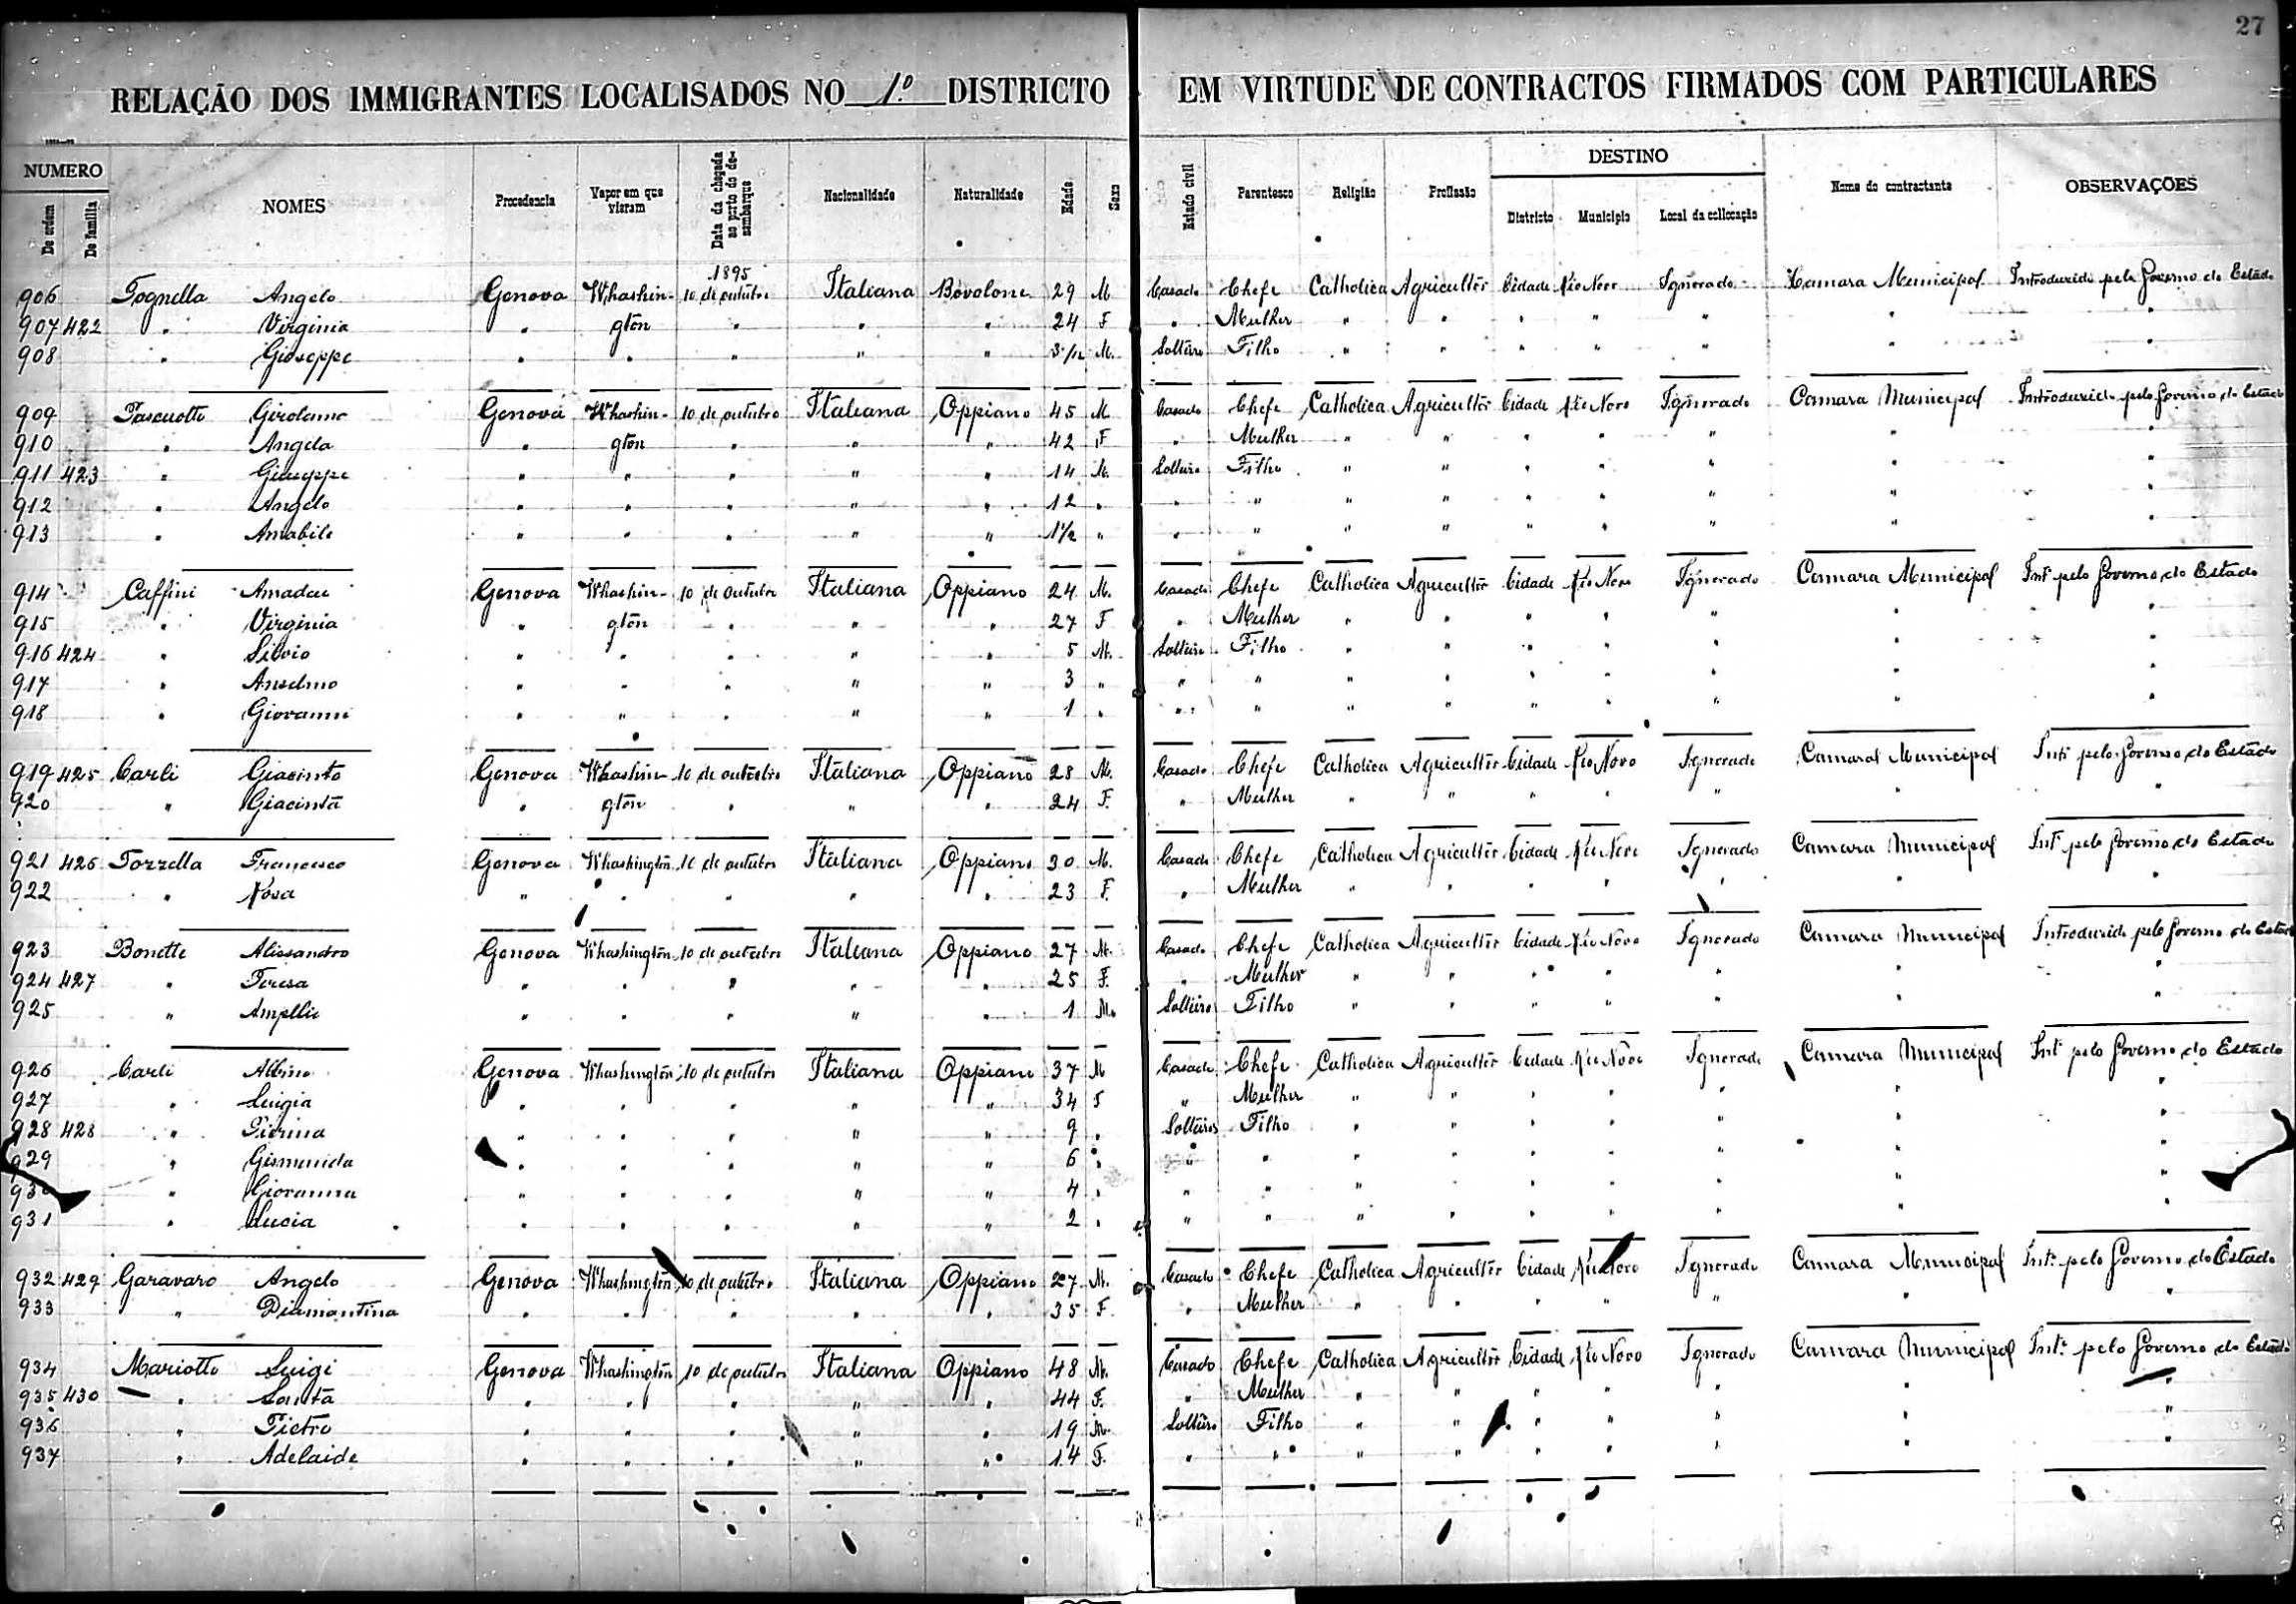 27
RELAÇÃO DOS IMMIGRANTES LOCALISADOS NO 1.º DISTRICTO EM VIRTUDE DE CONTRACTOS FIRMADOS COM PARTICULARES
NUMERO DESTINO
De ordem De familia NOMES Procedencia Vapor em que vieram Data da chegada ao porto do desembarque Nacionalidade Naturalidade Edade Sexo Estado civil Parentesco Religião Profissão Districto Municipio Local da collocação Nome do contractante OBSERVAÇÕES
1895
906 Tognella Angelo Genova Whashin- 10 de outubro Italiana Bovolone 29 M Casado Chefe Catholica Agricultôr Cidade Rio Novo Ignorado Camara Municipal Introduzido pelo Governo do Estado
907 422 " Virginia " gton " " " 24 F " Mulher " " " " " " "
908 " Gioseppe " " " " " 3/12 M. Solteiro Filho " " " " " " "
909 Pascuotto Girolamo Genova Whashin- 10 de outubro Italiana Oppiano 45 M Casado Chefe Catholica Agricultôr Cidade Rio Novo Ignorado Camara Municipal Introduzido pelo Governo do Estado
910 " Angela " gton " " " 42 F " Mulher " " " " " " "
911 423 " Giuseppe " " " " " 14 M. Solteiro Filho " " " " " " "
912 " Angelo " " " " " 12 " " " " " " " " " "
913 " Amabile " " " " " 1 1/2 " " " " " " " " " "
914 Caffini Amadeu Genova Whashin- 10 de outubro Italiana Oppiano 24 M. Casado Chefe Catholica Agricultôr Cidade Rio Novo Ignorado Camara Municipal Intº pelo Governo do Estado
915 " Virginia " gton " " " 27 F " Mulher " " " " " " "
916 424 " Silvio " " " " " 5 M. Solteiro Filho " " " " " " "
917 " Anselmo " " " " " 3 " " " " " " " " " "
918 " Giovanni " " " " " 1 " " " " " " " " " "
919 425 Carli Giacinto Genova Whashin- 10 de outubro Italiana Oppiano 28 M. Casado Chefe Catholica Agricultôr Cidade Rio Novo Ignorado Camara Municipal Intº pelo Governo do Estado
920 " Giacinta " gton " " " 24 F. " Mulher " " " " " " "
921 426 Tozzella Francesco Genova Whashington 10 de outubro Italiana Oppiano 30 M. Casado Chefe Catholica Agricultôr Cidade Rio Novo Ignorado Camara Municipal Intº pelo Governo do Estado
922 " Rosa " " " " " 23 F. " Mulher " " " " " " "
923 Bonette Alissandro Genova Whashington 10 de outubro Italiana Oppiano 27 M. Casado Chefe Catholica Agricultôr Cidade Rio Novo Ignorado Camara Municipal Introduzido pelo Governo do Estado
924 427 " Teresa " " " " " 25 F. " Mulher " " " " " " "
925 " " " " " " 1 M. Solteiro Filho " " " " " " "
926 Carli Albino Genova Whashington 10 de outubro Italiana Oppiano 37 M Casado Chefe Catholica Agricultôr Cidade Rio Novo Ignorado Camara Municipal Intº pelo Governo do Estado
927 " Luigia " " " " " 34 F " Mulher " " " " " " "
928 428 " Pierina " " " " " 9 " Solteiros Filho " " " " " " "
929 " Gismunda " " " " " 6 " " " " " " " " " "
930 " Giovanna " " " " " 4 " " " " " " " " " "
931 " Lucia " " " " " 2 " " " " " " " " " "
932 429 Garavaro Angelo Genova Whashington 10 de outubro Italiana Oppiano 27 M. Casado Chefe Catholica Agricultôr Cidade Rio Novo Ignorado Camara Municipal Intº pelo Governo do Estado
933 " Diamantina " " " " " 35 F " Mulher " " " " " " "
934 Mariotto Luigi Genova Whashington 10 de outubro Italiana Oppiano 48 M. Casado Chefe Catholica Agricultôr Cidade Rio Novo Ignorado Camara Municipal Intº pelo Governo do Estado
935 430 " Santa " " " " " 44 F. " Mulher " " " " " " "
936 " Pietro " " " " " 19 M. Solteiro Filho " " " " " " "
937 " Adelaide " " " " " 14 F. " " " " " " " " "